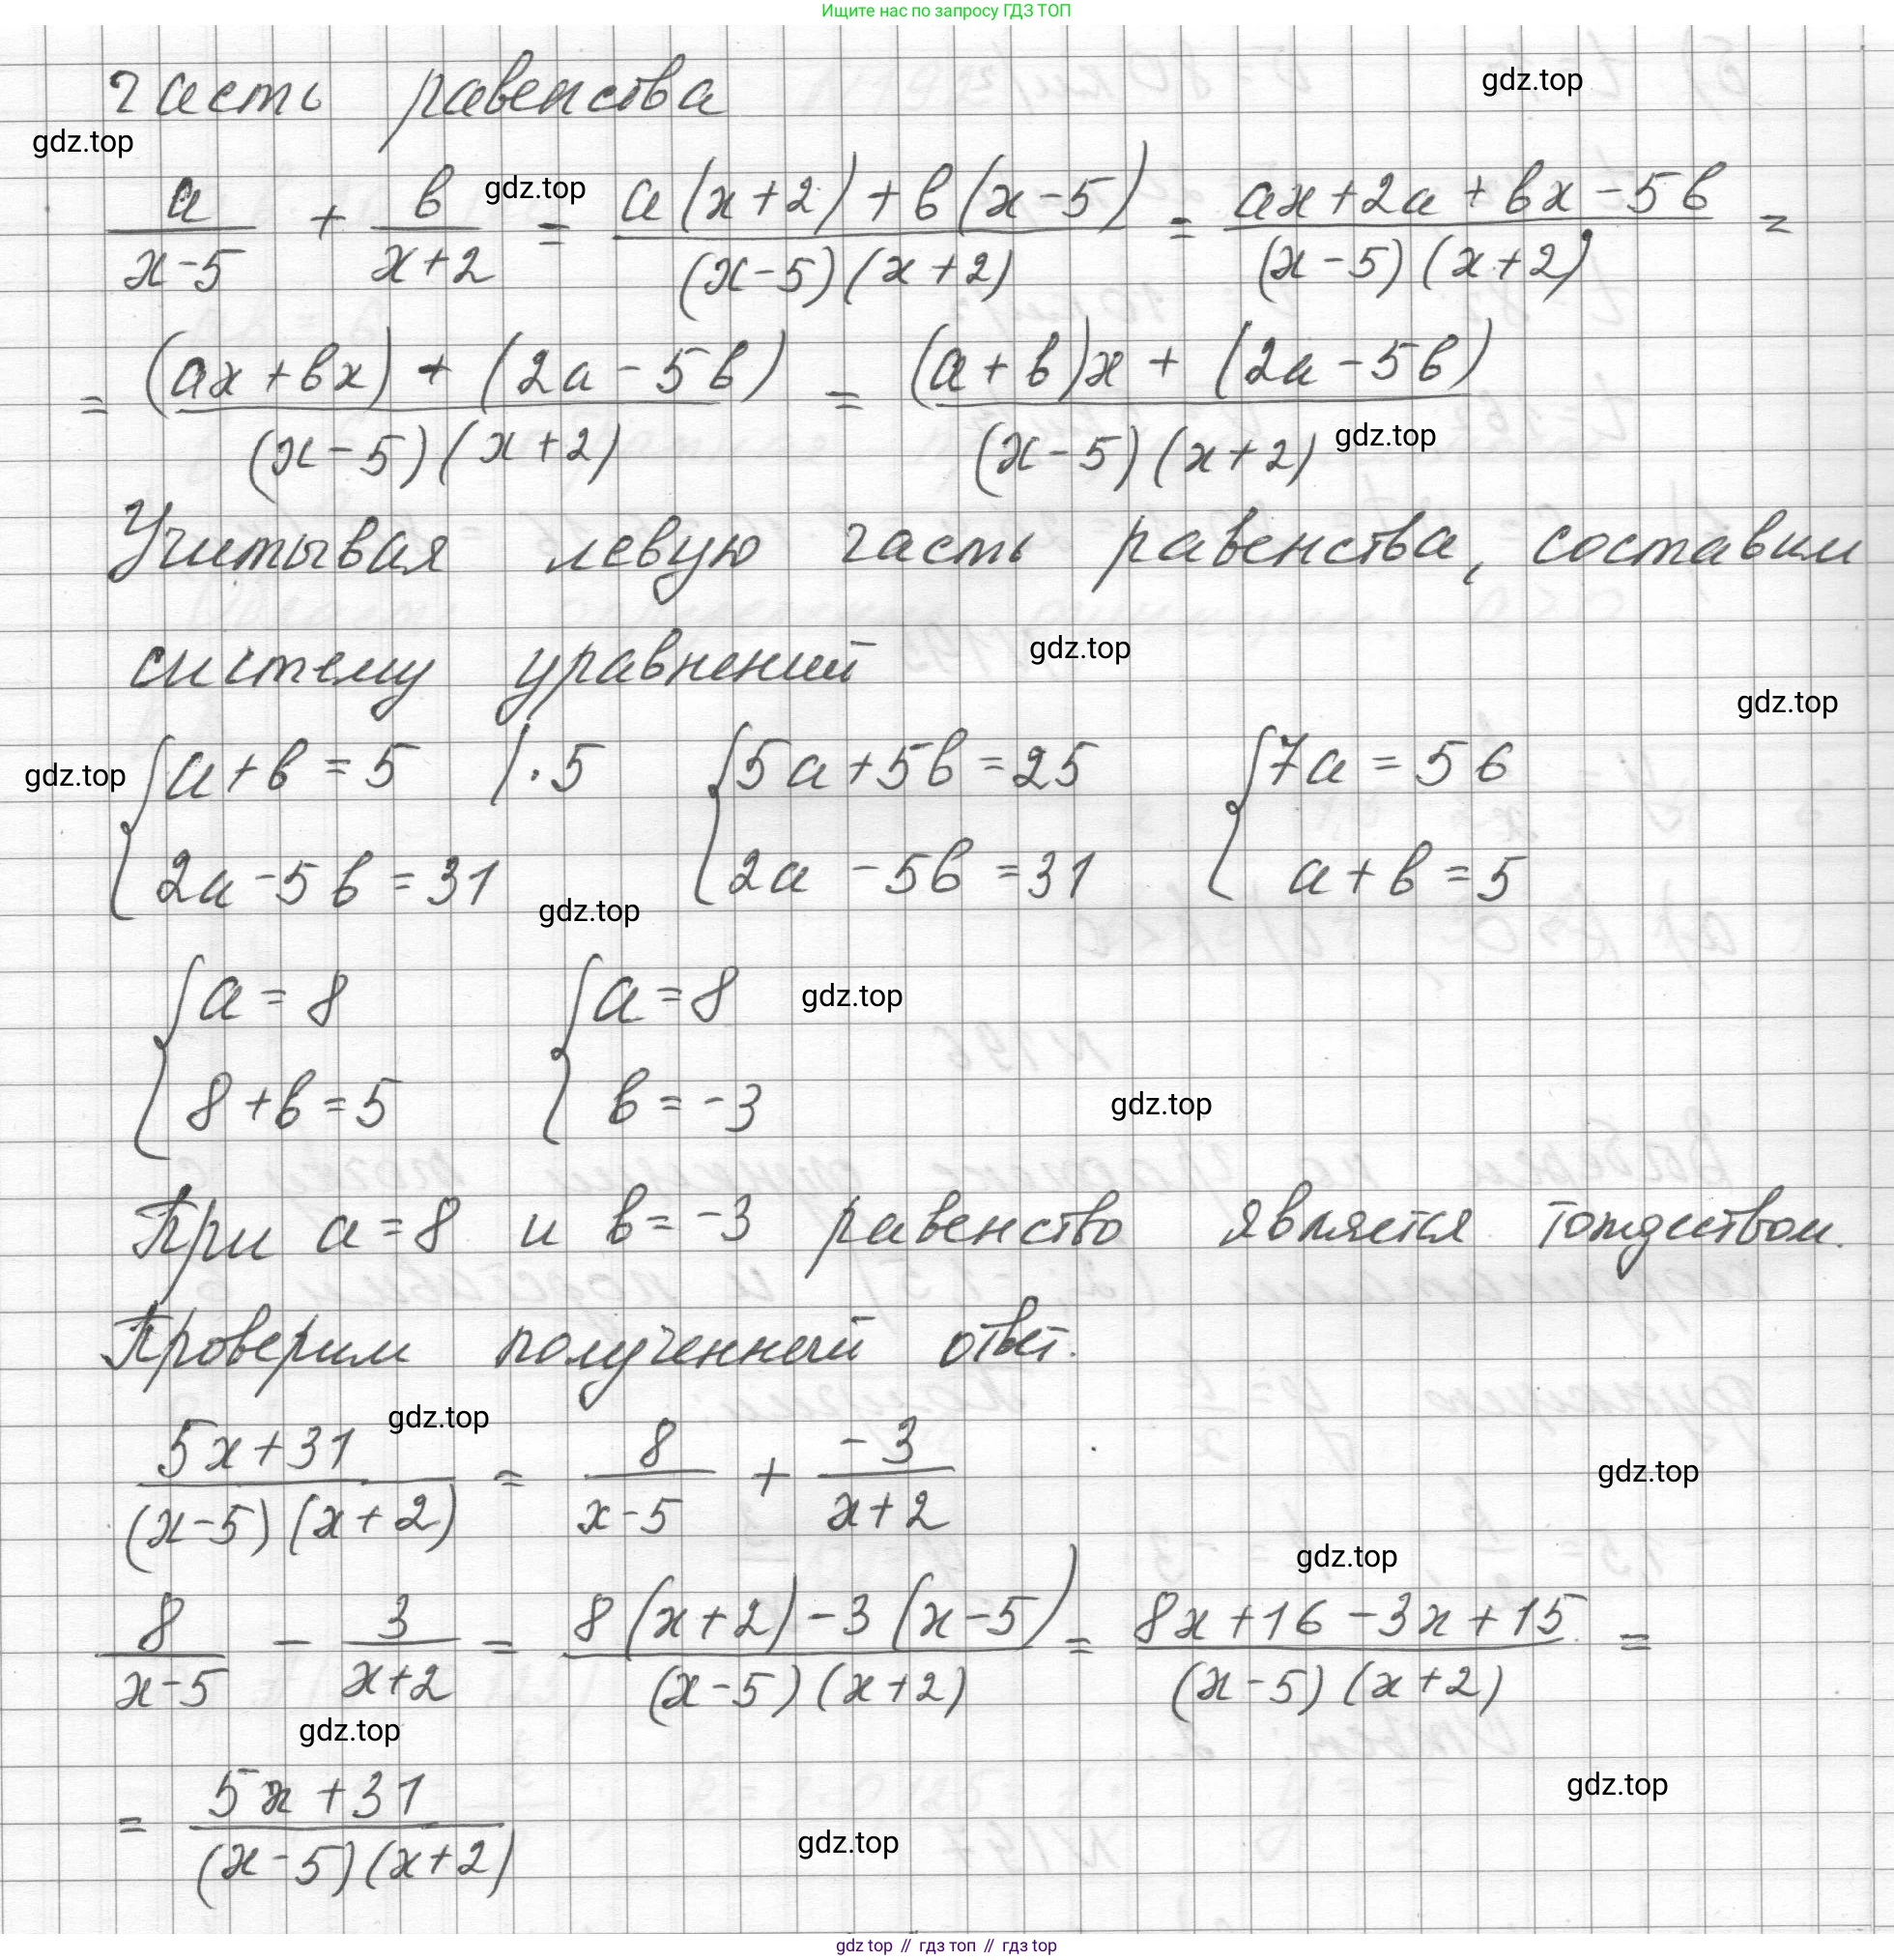 Ищите нас по запросу ГДЗ ТОП
часть равенства
gdz.top
gdz.top
a/(x-5) + b/(x+2) = (a(x+2)+b(x-5))/((x-5)(x+2)) = (ax+2a+bx-5b)/((x-5)(x+2)) =
gdz.top
= ((ax+bx)+(2a-5b))/((x-5)(x+2)) = ((a+b)x+(2a-5b))/((x-5)(x+2))
gdz.top
Учитывая левую часть равенства, составим
систему уравнений
gdz.top
gdz.top
{a+b=5 |·5 {5a+5b=25 {7a=56
gdz.top
{2a-5b=31 {2a-5b=31 {a+b=5
gdz.top
{a=8 {a=8
gdz.top
{8+b=5 {b=-3
gdz.top
При a=8 и b=-3 равенство является тождеством.
Проверим полученный ответ.
gdz.top
(5x+31)/((x-5)(x+2)) = 8/(x-5) + (-3)/(x+2)
gdz.top
gdz.top
8/(x-5) - 3/(x+2) = (8(x+2)-3(x-5))/((x-5)(x+2)) = (8x+16-3x+15)/((x-5)(x+2)) =
gdz.top
gdz.top
= (5x+31)/((x-5)(x+2))
gdz.top
gdz top // гдз топ // гдз top